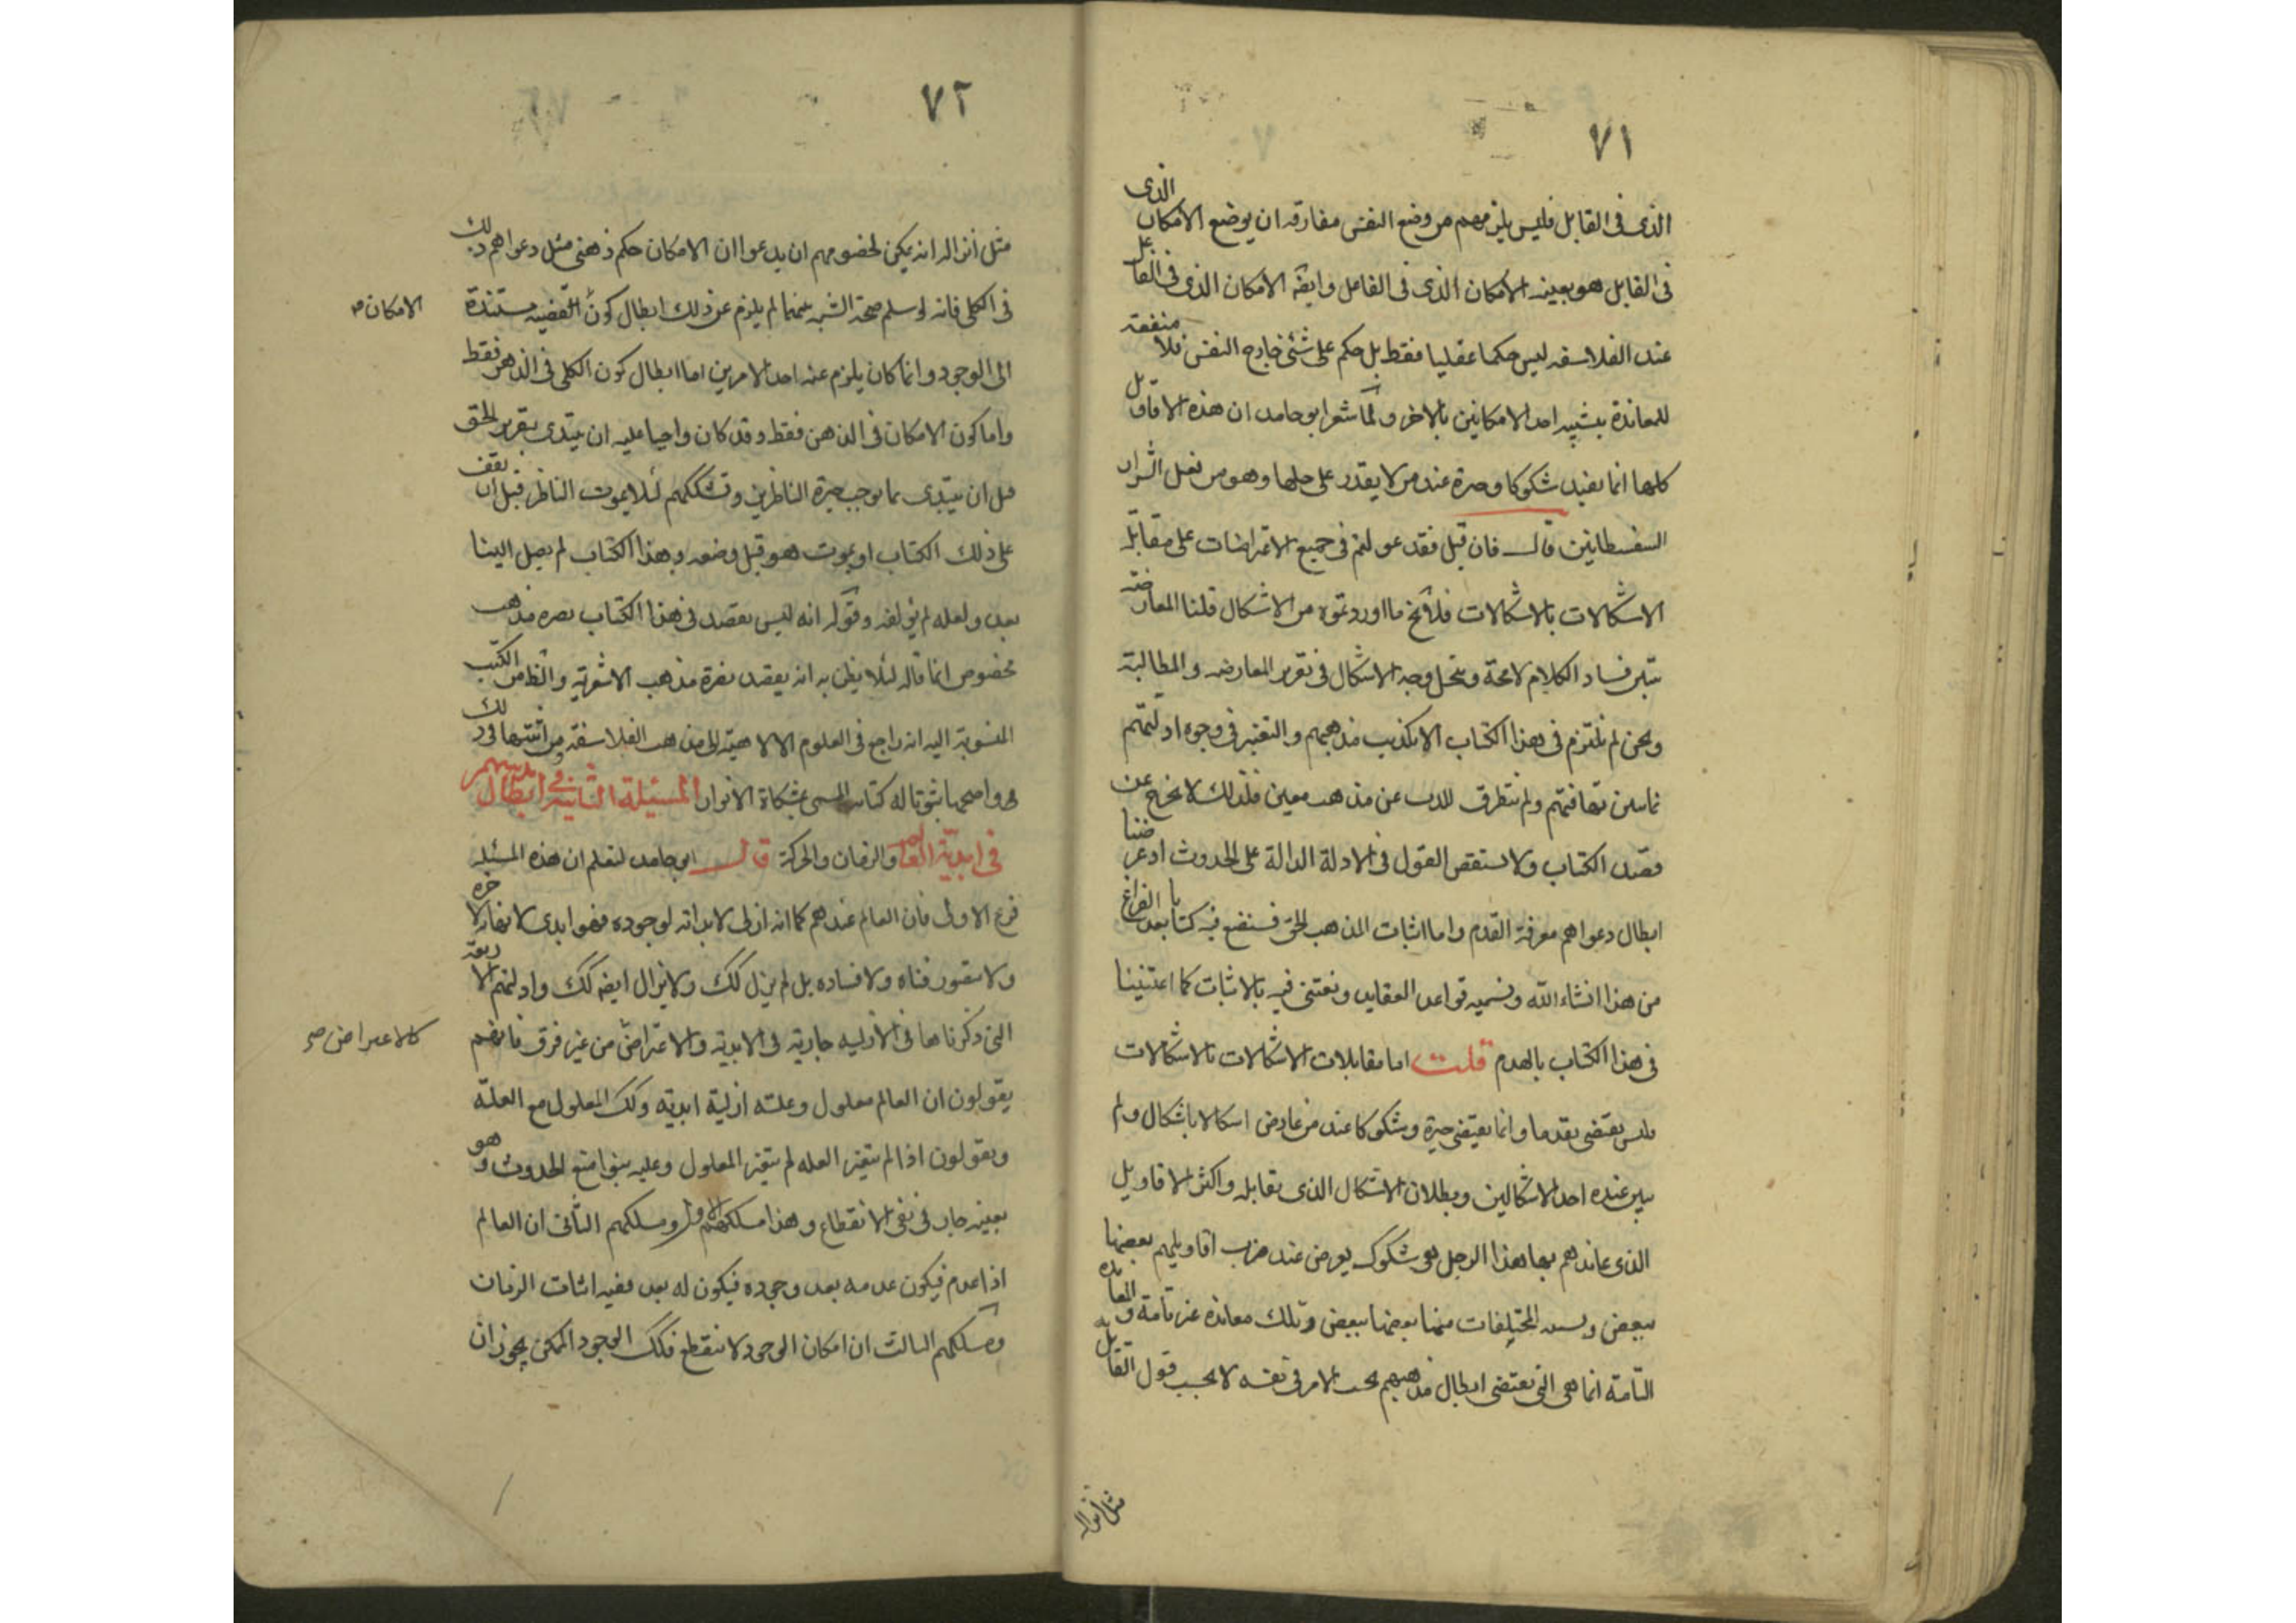 ٧١
الذى فى القابل فليس يلزمهم من وضع النفس مفارقه ان يوضع الامكان الذى
فى القابل هو بعينه الامكان الذى فى الفاعل وايضه الامكان الذى فى الفاعل
عند الفلاسفه ليس حكما عقليا فقط بل حكم على شئ خارج النفس فلا منفعة
للمعاندة بتشبيه احد الامكانين بالاخر ولما شعر ابو حامد ان هذه الاقاويل
كلها انما يفيد شكوكا وحيرة عند من لا يقدر على حلها وهو من فعل الشرار
السفسطانيين قال فان قيل فقد عولتم فى جميع الاعتراضات على مقابلة
الاشكالات بالاشكالات فلا يخ ما اوردتموه من الاشكال قلنا المعارضته
تبين فساد الكلام لا محة وينحل وجه الاشكال فى تقرير المعارضه والمطالبة
ونحن لم نلتزم فى هذا الكتاب الا تكذيب مذهبهم والتغير فى وجوه ادلتهم
نما يبين تهافتهم ولم نتطرق للذب عن مذهب معين فلذلك لا نخرج عن
مقصد الكتاب ولا نستقص القول فى الادلة الدالة على الحدوث اذ غرضنا
ابطال دعواهم معرفة القدم واما اثبات المذهب الحق فسنضع فيه كتابا بعد الفراغ
من هذا انشاء الله ونسميه قواعد العقايد ونعتنى فيه بالاثبات كما اعتنينا
فى هذا الكتاب بالهدم قلت اما مقابلات الاشكالات بالاشكالات
فليس يقتضى هدما وانما يقتضى حيرة وشكوكا عند من عارض اشكالا باشكال ولم
يبين عنده احد الاشكالين وبطلان الاشكال الذى يقابله واكثر الاقاويل
الذى عاندهم بها هذا الرجل هى شكوك يعرض عند ضرب اقاويلهم بعضها
ببعض وتشبيه المختلفات منها بعضها ببعض وتلك معانده غير تامة والمعانده
التامة انما هى التى تقتضى ابطال مذهبهم بحسب الامر فى نفسه لا بحسب قول القايل به
مثل انزاله
٧٢
مثل انزاله انه يمكن لخصومهم ان يدعوا ان الامكان حكم ذهنى مثل دعواهم ذلك
فى الكلى فانه لو سلم صحة الشبه بينهما لم يلزم عن ذلك ابطال كون القضيه مستندة
الامكان صه
الى الوجود وانما كان يلزم عنه احد الامرين اما ابطال كون الكلى فى الذهن فقط
واما كون الامكان فى الذهن فقط وقد كان واجبا عليه ان يبتدى بتقرير الحق
قبل ان يبتدى بما يوجب حيرة الناظرين وتشككهم لئلا يموت الناظر قبل ان يقف
على ذلك الكتاب او يموت هو قبل وضعه وهذا الكتاب لم يصل الينا
بعد ولعله لم يؤلفه وقوله انه ليس يقصد فى هذا الكتاب نصره مذهب
مخصوص انما قاله لئلا يظن به انه يقصد نصرة مذهب الاشعرية والظ من الكتب
المنسوبة اليه انه راجع فى العلوم الالاهية الى مذهب الفلاسفة ومن اثبتها فى ذلك
هو واصحها ثبوتا له كتابه المسمى بمشكاة الانوار المسئلة الثانية فى ابطال مذهبهم
فى ابدية العالم والزمان والحركة قال ابو حامد لتعلم ان هذه المسئلة
فرع الاولى فان العالم عندهم كما انه ازلى لا بداته لوجوده فهو ابدى لا نهاية لاخره
ولا يتصور فناه ولا فساده بل لم يزل كلك ولا يزال ايضه كلك وادلتهم الاربعة
التى ذكرناها فى الازليه جارية فى الابدية والاعتراض من غير فرق فانهم
كالاعتراض صه
يقولون ان العالم معلول وعلته ازلية ابدية وكلك المعلول مع العلة
ويقولون اذا لم يتغير العله لم يتغير المعلول وعليه بنوا منع الحدوث وهو
بعينه جار فى نفى الانقطاع وهذا مسلكهم الاول ومسلكهم الثانى ان العالم
اذا عدم فيكون عدمه بعد وجوده فيكون له بعد ففيه اثبات الزمان
ومسلكهم الثالث ان امكان الوجود لا ينقطع فكلك الوجود الممكن يجوز ان